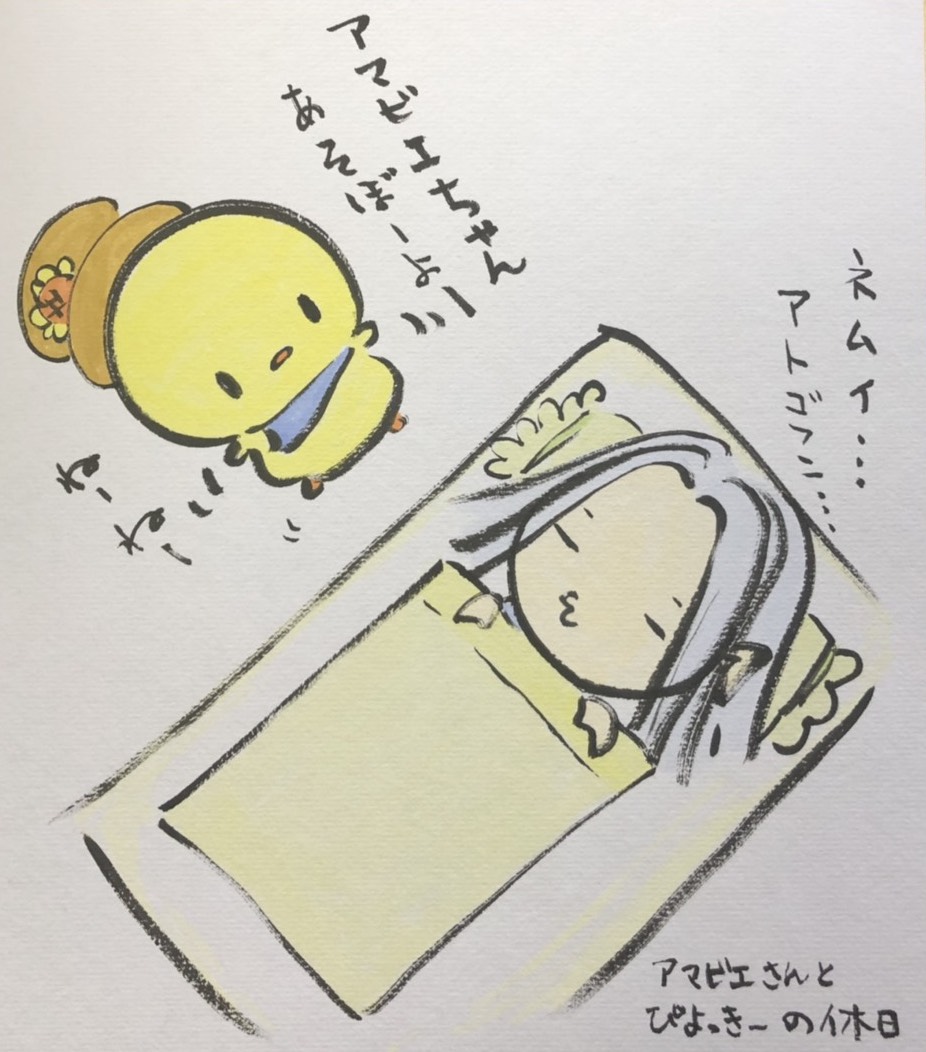 アマビエちゃん
あそぼーよ
ねー
ねー
ネムイ…
アトゴフン…
アマビエさんと
ぴよっきーの休日